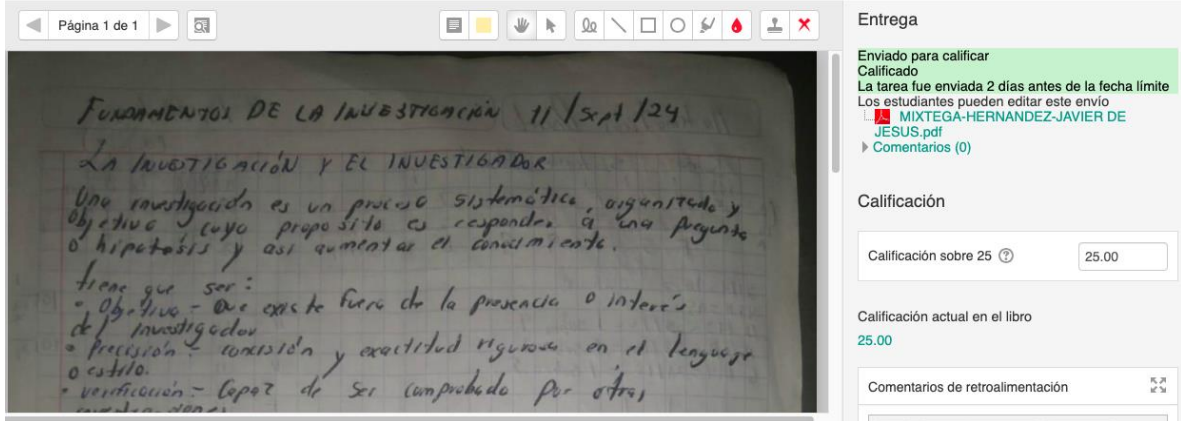 Página 1 de 1
FUNDAMENTOS DE LA INVESTIGACIÓN 11/Sept/24
LA INVESTIGACIÓN Y EL INVESTIGADOR
Una investigación es un proceso sistemático, organizado y
objetivo cuyo proposito es responder a una pregunta
o hipotesis y asi aumentar el conocimiento.
tiene que ser:
• Objetivo - Que existe fuera de la presencia o interés
del investigador
• Precisión - concisión y exactitud rigurosa en el lenguaje
o estilo.
• verificación - Capaz de ser comprobado por otras
Entrega
Enviado para calificar
Calificado
La tarea fue enviada 2 días antes de la fecha límite
Los estudiantes pueden editar este envío
MIXTEGA-HERNANDEZ-JAVIER DE
JESUS.pdf
Comentarios (0)
Calificación
Calificación sobre 25 25.00
Calificación actual en el libro
25.00
Comentarios de retroalimentación